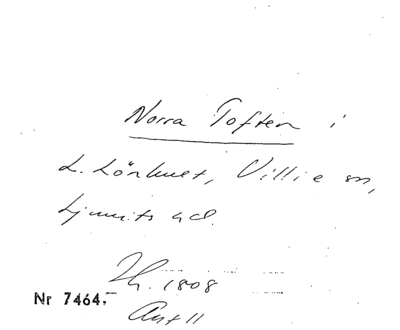 Norra Toften i
L. Lönhult, Villie sn,
Ljunits hd.
Th. 1808
Nr 7464.-
Ant 11